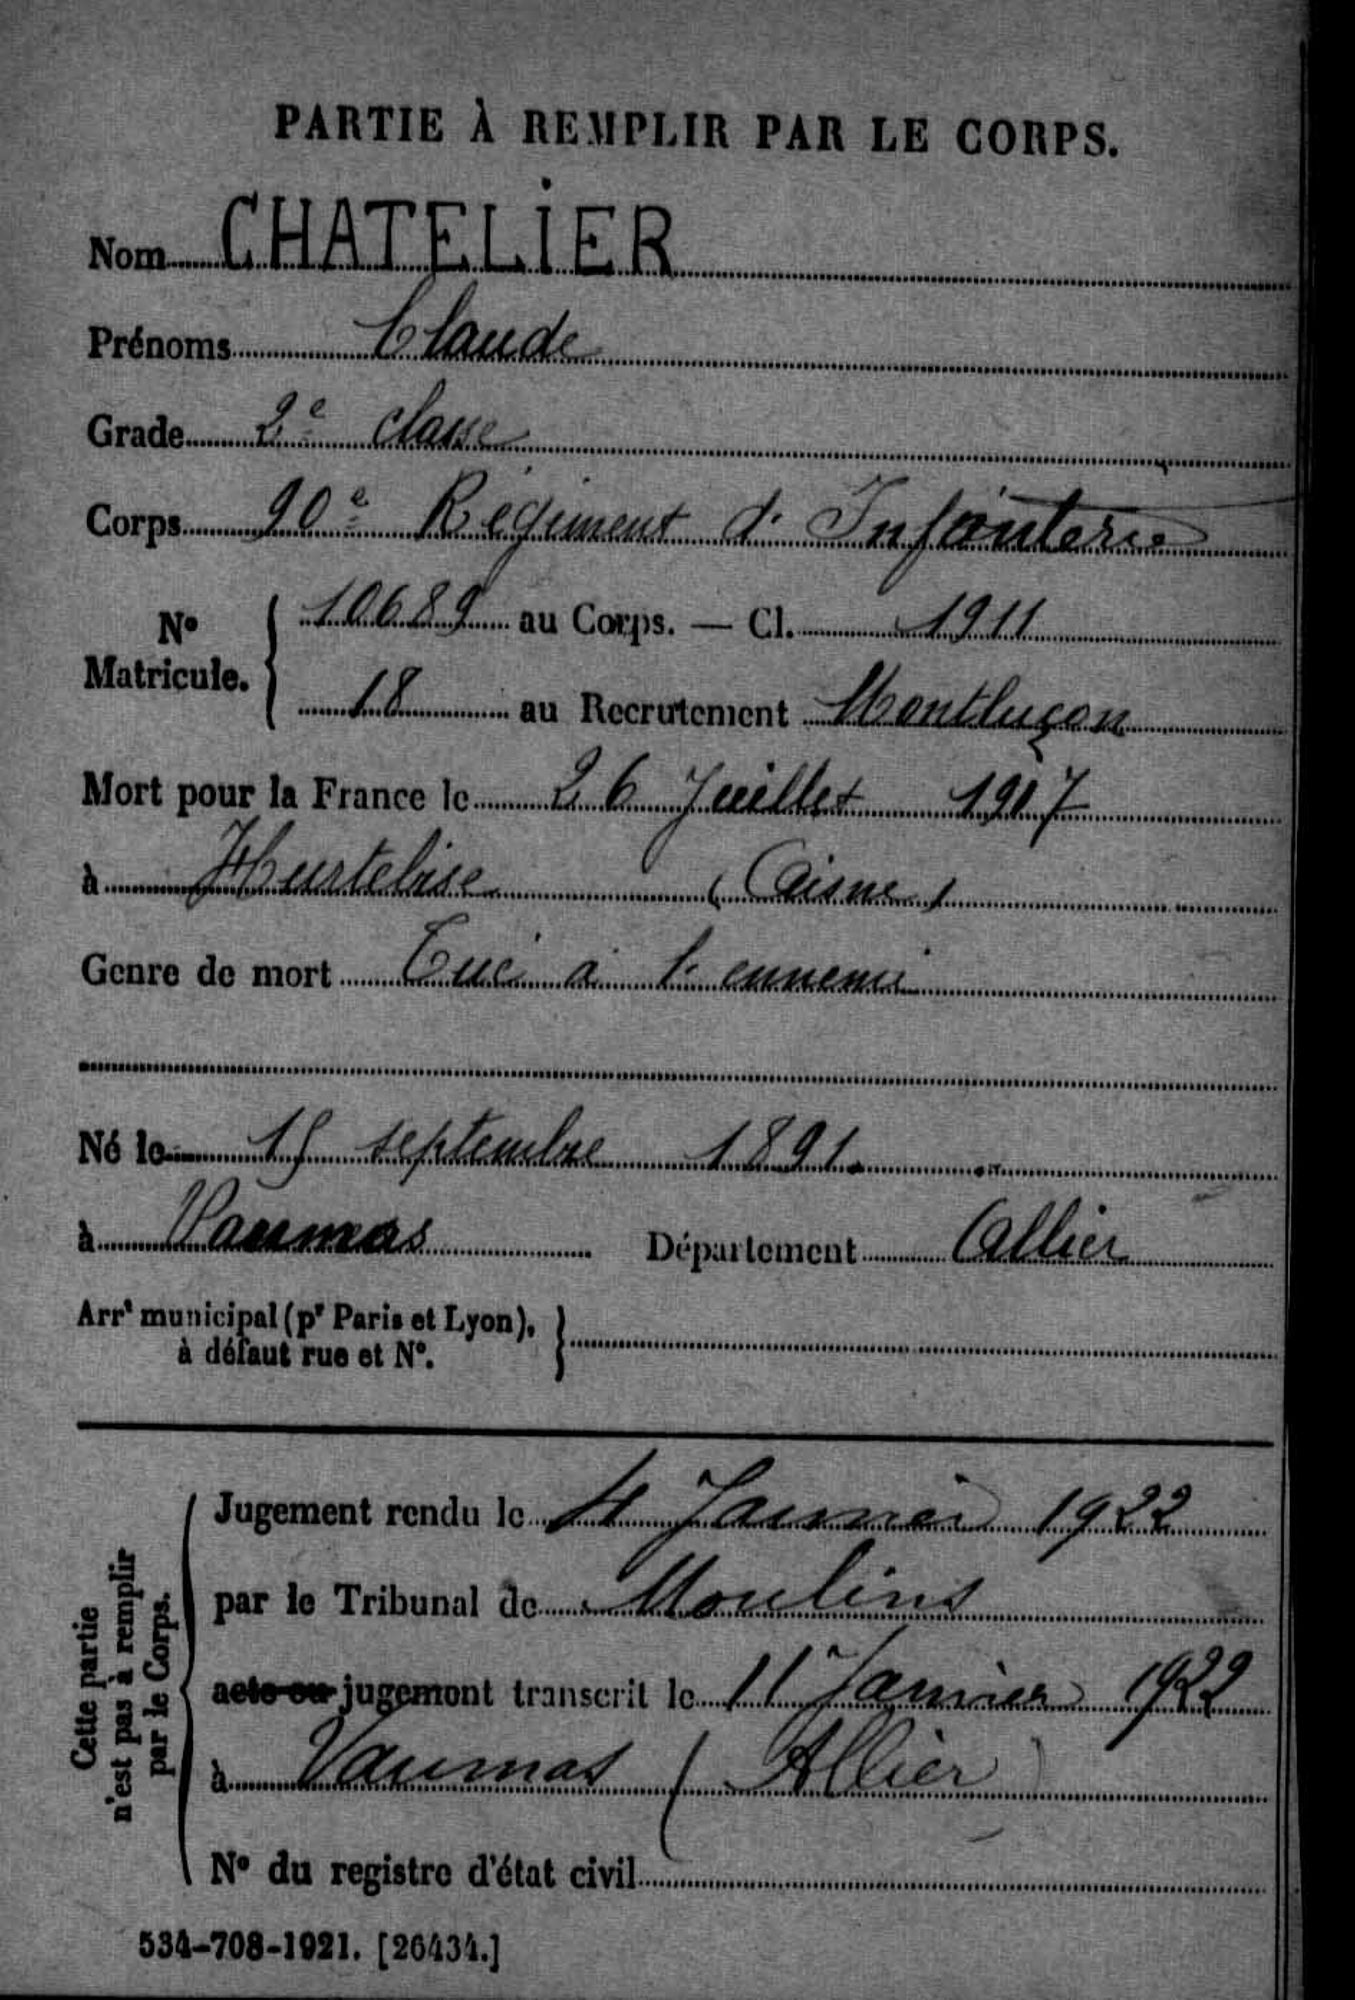 PARTIE À REMPLIR PAR LE CORPS.
Nom CHATELIER
Prénoms Claude
Grade 2e classe
Corps 90e Régiment d'Infanterie
No Matricule. 10689 au Corps. — Cl. 1911
18 au Recrutement Montluçon
Mort pour la France le 26 Juillet 1917
à Hurtebise (Aisne)
Genre de mort Tué à l'ennemi
Né le 15 septembre 1891.
à Vaumas Département Allier
Arrt municipal (pr Paris et Lyon),
à défaut rue et No.
Cette partie
n'est pas à remplir
par le Corps.
Jugement rendu le 4 Janvier 1922
par le Tribunal de Moulins
acte ou jugement transcrit le 11 Janvier 1922
à Vaumas (Allier)
No du registre d'état civil
534-708-1921. [26434.]